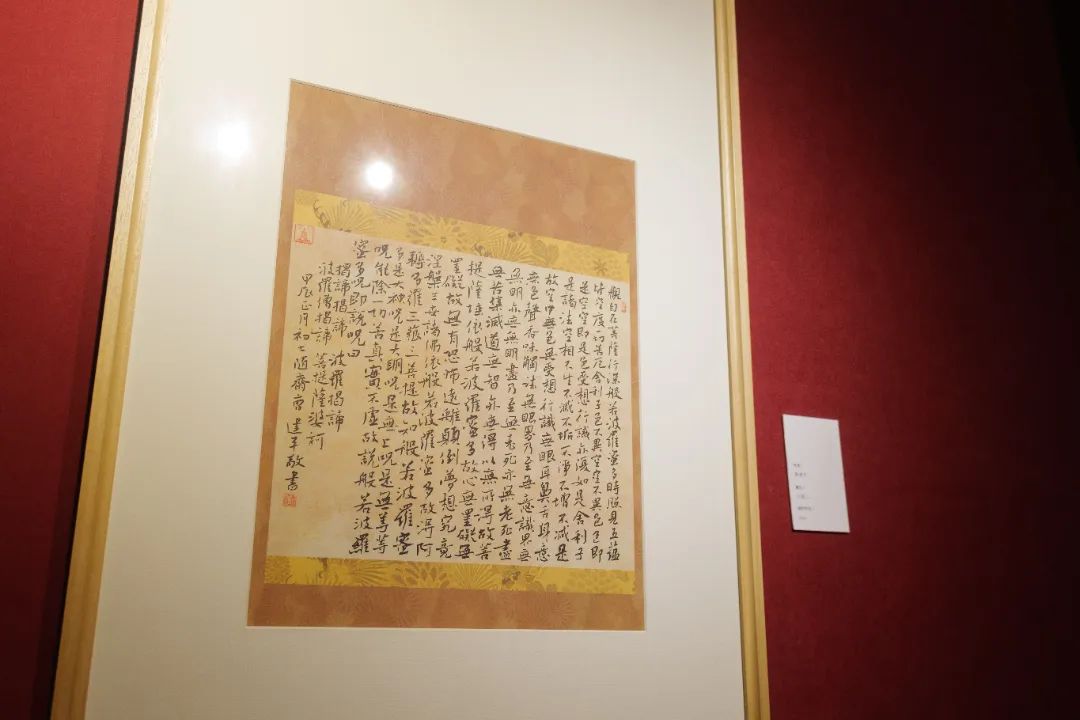 觀自在菩薩行深般若波羅蜜多時照見五蘊
皆空度一切苦厄舍利子色不異空空不異色色即
是空空即是色受想行識亦復如是舍利子
是諸法空相不生不滅不垢不淨不增不減是
故空中無色無受想行識無眼耳鼻舌身意
無色聲香味觸法無眼界乃至無意識界無
無明亦無無明盡乃至無老死亦無老死盡
無苦集滅道無智亦無得以無所得故菩
提薩埵依般若波羅蜜多故心無罣礙無
罣礙故無有恐怖遠離顛倒夢想究竟
涅槃三世諸佛依般若波羅蜜多故得阿
耨多羅三藐三菩提故知般若波羅蜜
多是大神呪是大明呪是無上呪是無等等
呪能除一切苦真實不虛故說般若波羅
蜜多呪即說呪曰
揭諦揭諦 波羅揭諦
波羅僧揭諦 菩提薩婆訶
甲辰正月初七隨齋曹建平敬書